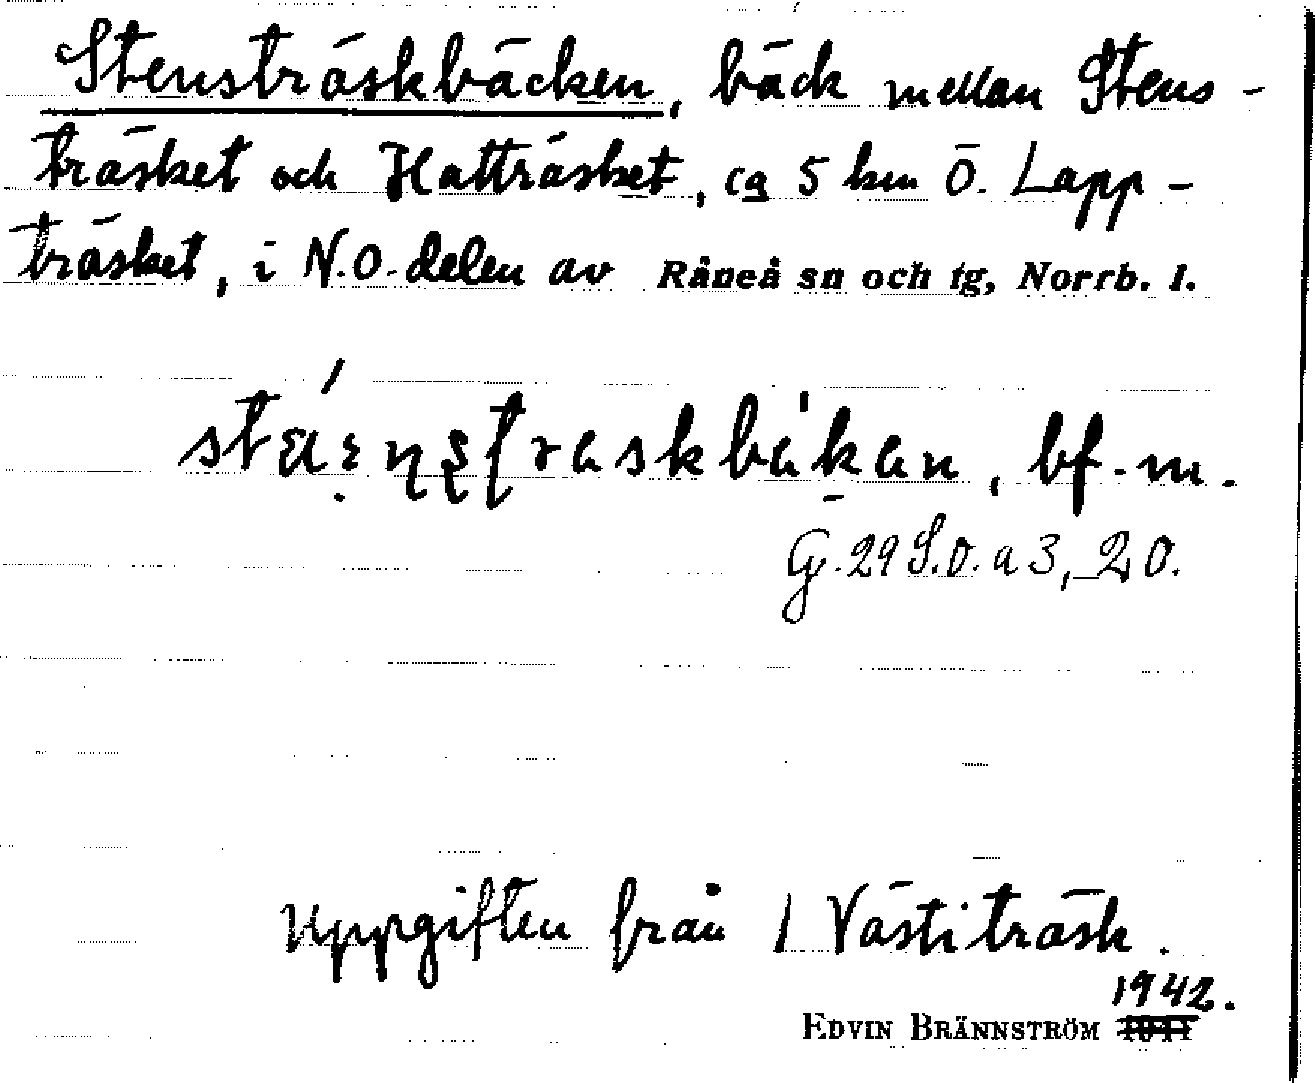 Stensträskbäcken, bäck mellan Stens-
träsket och Hatträsket, ca 5 km Ö. Lapp-
träsket, i N.O. delen av Råneå sn och tg, Norrb. l.
bf. m.
G. 29 S.O. a 3, 20.
Uppgiften från 1 Västiträsk.
1942.
EDVIN BRÄNNSTRÖM 1941